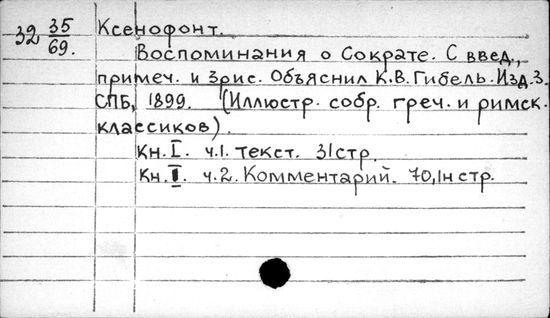 32 35/69. Ксенофонт.
Воспоминания о Сократе. С введ.,
примеч. и 3рис. Объяснил К.В. Гибель. Изд.3.
СПБ, 1899. (Иллюстр. собр. греч. и римск.
классиков).
Кн. I. ч.1. текст. 31стр.
Кн. II. ч.2. Комментарий. 70,1н стр.